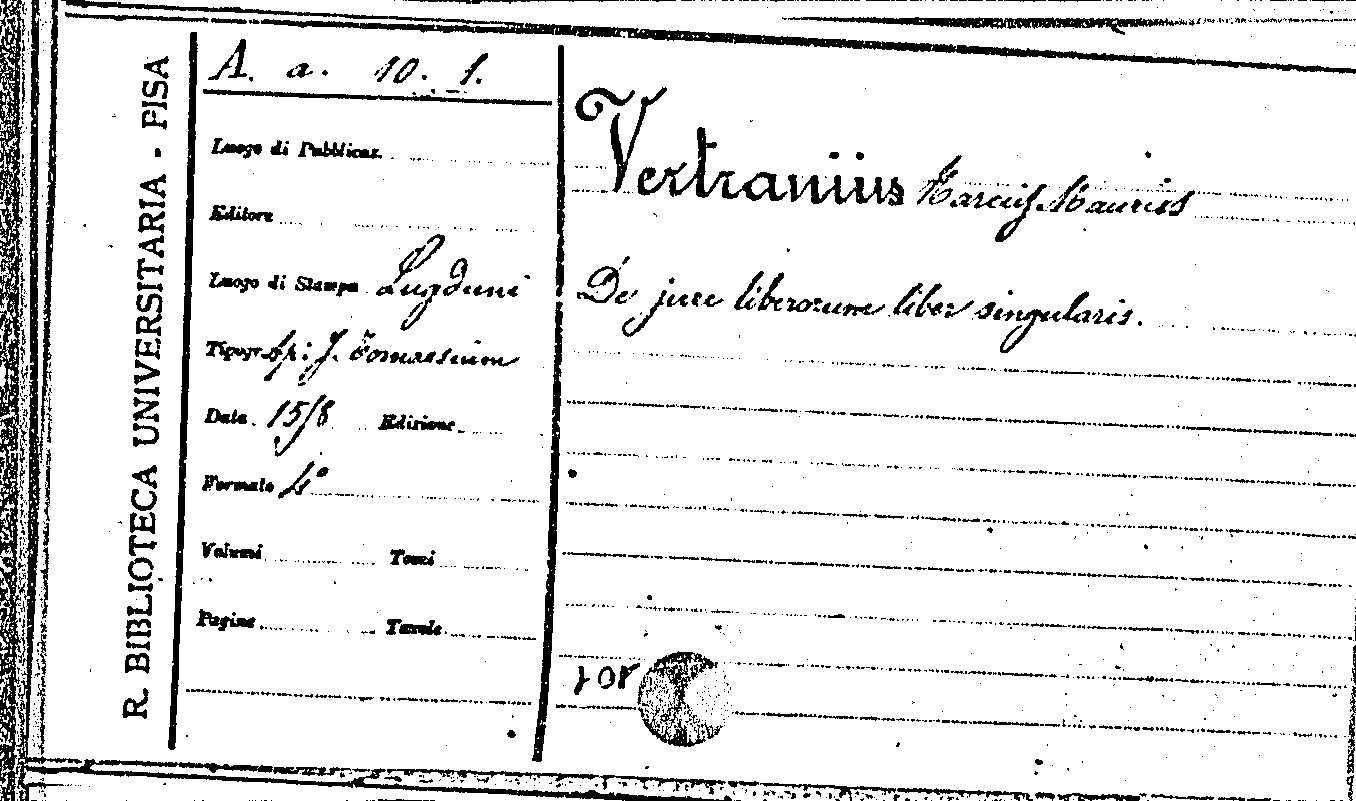 R. BIBLIOTECA UNIVERSITARIA - PISA
A. a. 10. 1.
Luogo di Pubblicaz.
Editore
Luogo di Stampa Lugduni
Tipogr. ap: J. Tornaesium
Data 1558 Edizione
Formato 4°
Volumi Tomi
Pagine Tavole
Vertranius Marcus Maurus
De jure liberorum liber singularis.
108